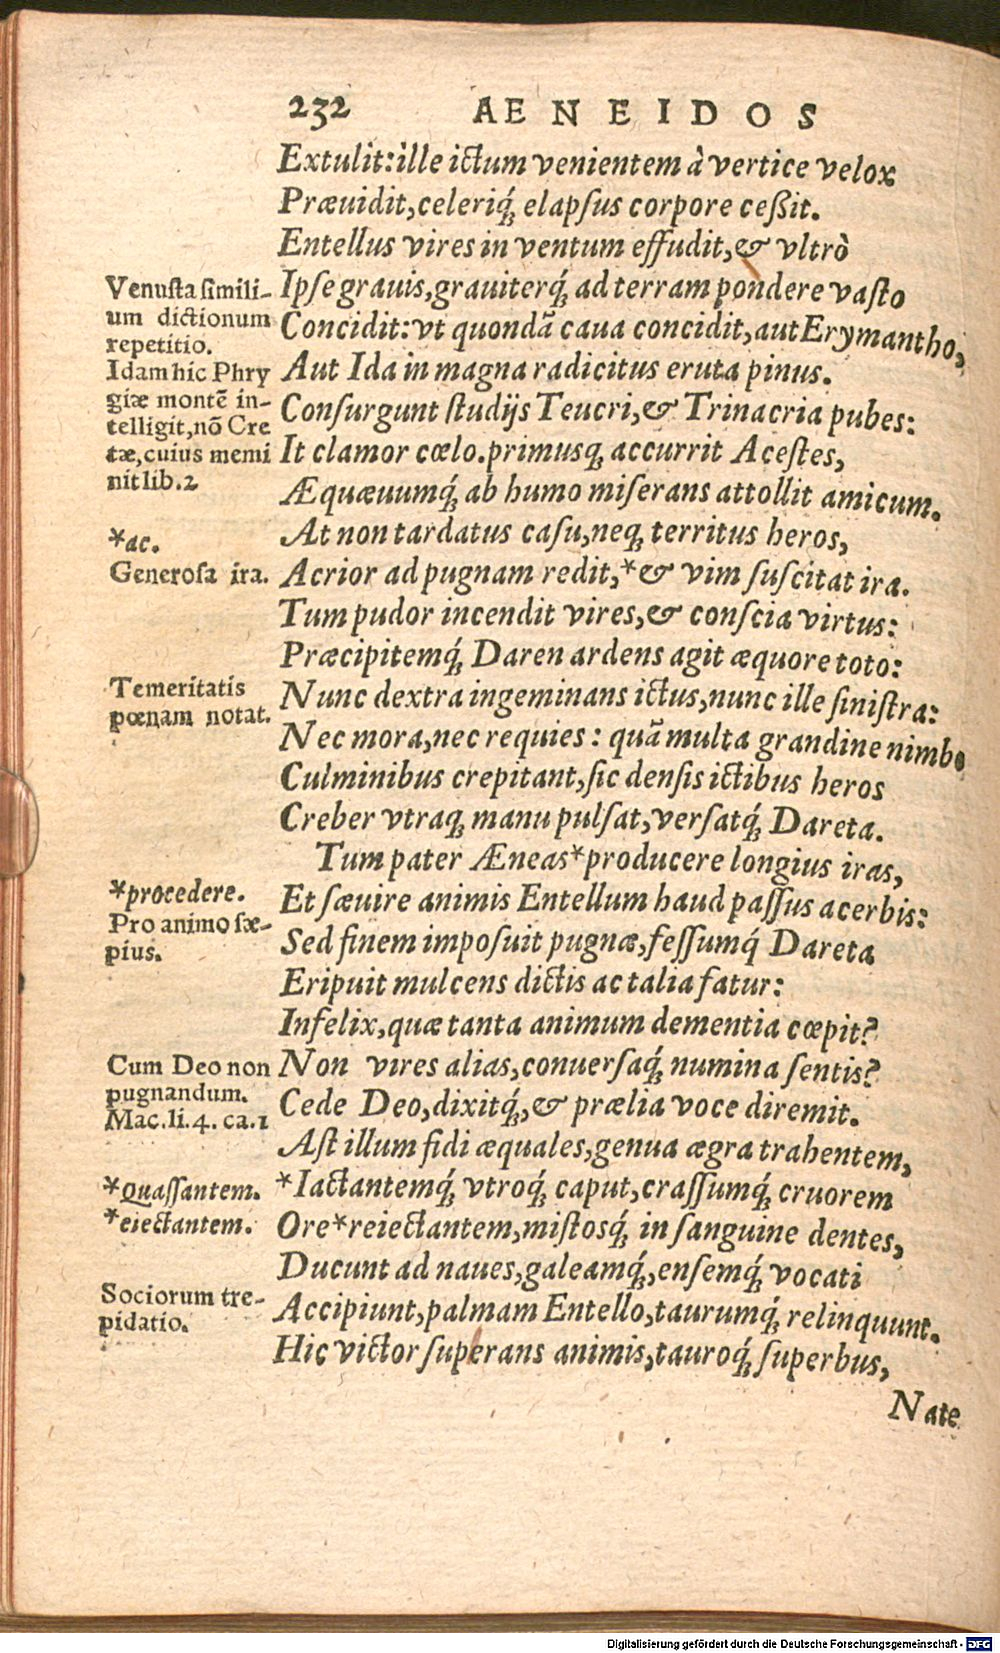 232 AENEIDOS
Extulit: ille ictum venientem à vertice velox
Præuidit, celeriq́; elapsus corpore ceßit.
Entellus vires in ventum effudit, & vltrò
Ipse grauis, grauiterq́; ad terram pondere vasto
Concidit: vt quondã caua concidit, aut Erymantho,
Aut Ida in magna radicitus eruta pinus.
Consurgunt studijs Teucri, & Trinacria pubes:
It clamor cœlo. primusq; accurrit Acestes,
Æquæuumq́; ab humo miserans attollit amicum.
At non tardatus casu, neq; territus heros,
Acrior ad pugnam redit, *& vim suscitat ira.
Tum pudor incendit vires, & conscia virtus:
Præcipitemq́; Daren ardens agit æquore toto:
Nunc dextra ingeminans ictus, nunc ille sinistra:
Nec mora, nec requies: quã multa grandine nimbo
Culminibus crepitant, sic densis ictibus heros
Creber vtraq; manu pulsat, versatq́; Dareta.
Tum pater Æneas *producere longius iras,
Et sæuire animis Entellum haud passus acerbis:
Sed finem imposuit pugnæ, fessumq́ Dareta
Eripuit mulcens dictis ac talia fatur:
Infelix, quæ tanta animum dementia cœpit?
Non vires alias, conuersaq́; numina sentis?
Cede Deo, dixitq́;, & prælia voce diremit.
Ast illum fidi æquales, genua ægra trahentem,
*Iactantemq́; vtroq́; caput, crassumq́; cruorem
Ore *reiectantem, mistosq́; in sanguine dentes,
Ducunt ad naues, galeamq́;, ensemq́; vocati
Accipiunt, palmam Entello, taurumq́; relinquunt.
Hic victor superans animis, tauroq́; superbus,
Nate
Venusta simili-
um dictionum
repetitio.
Idam hic Phry
giæ montẽ in-
telligit, nõ Cre
tæ, cuius memi
nit lib. 2
*ac.
Generosa ira.
Temeritatis
pœnam notat.
*procedere.
Pro animo sæ-
pius.
Cum Deo non
pugnandum.
Mac. li. 4. ca. 1
*Quassantem.
*eiectantem.
Sociorum tre-
pidatio.
Digitalisierung gefördert durch die Deutsche Forschungsgemeinschaft - DFG